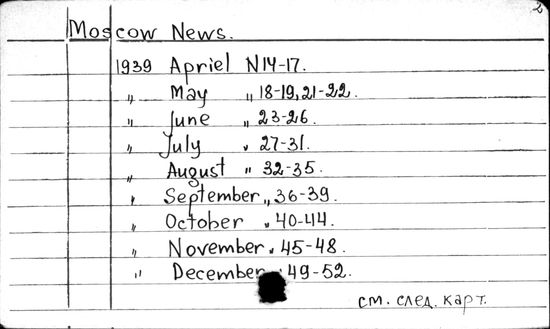 2
Moscow News.
1939 Apriel N14-17.
„ May „ 18-19, 21-22.
„ June „ 23-26.
„ July „ 27-31.
„ August „ 32-35.
„ September „ 36-39.
„ October „ 40-44.
„ November „ 45-48.
„ December „ 49-52.
см. след. карт.